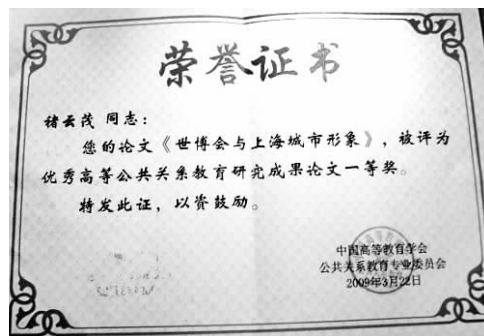 荣誉证书
褚云茂 同志：
您的论文《世博会与上海城市形象》，被评为
优秀高等公共关系教育研究成果论文一等奖。
特发此证，以资鼓励。
中国高等教育学会
公共关系教育专业委员会
2009年3月22日